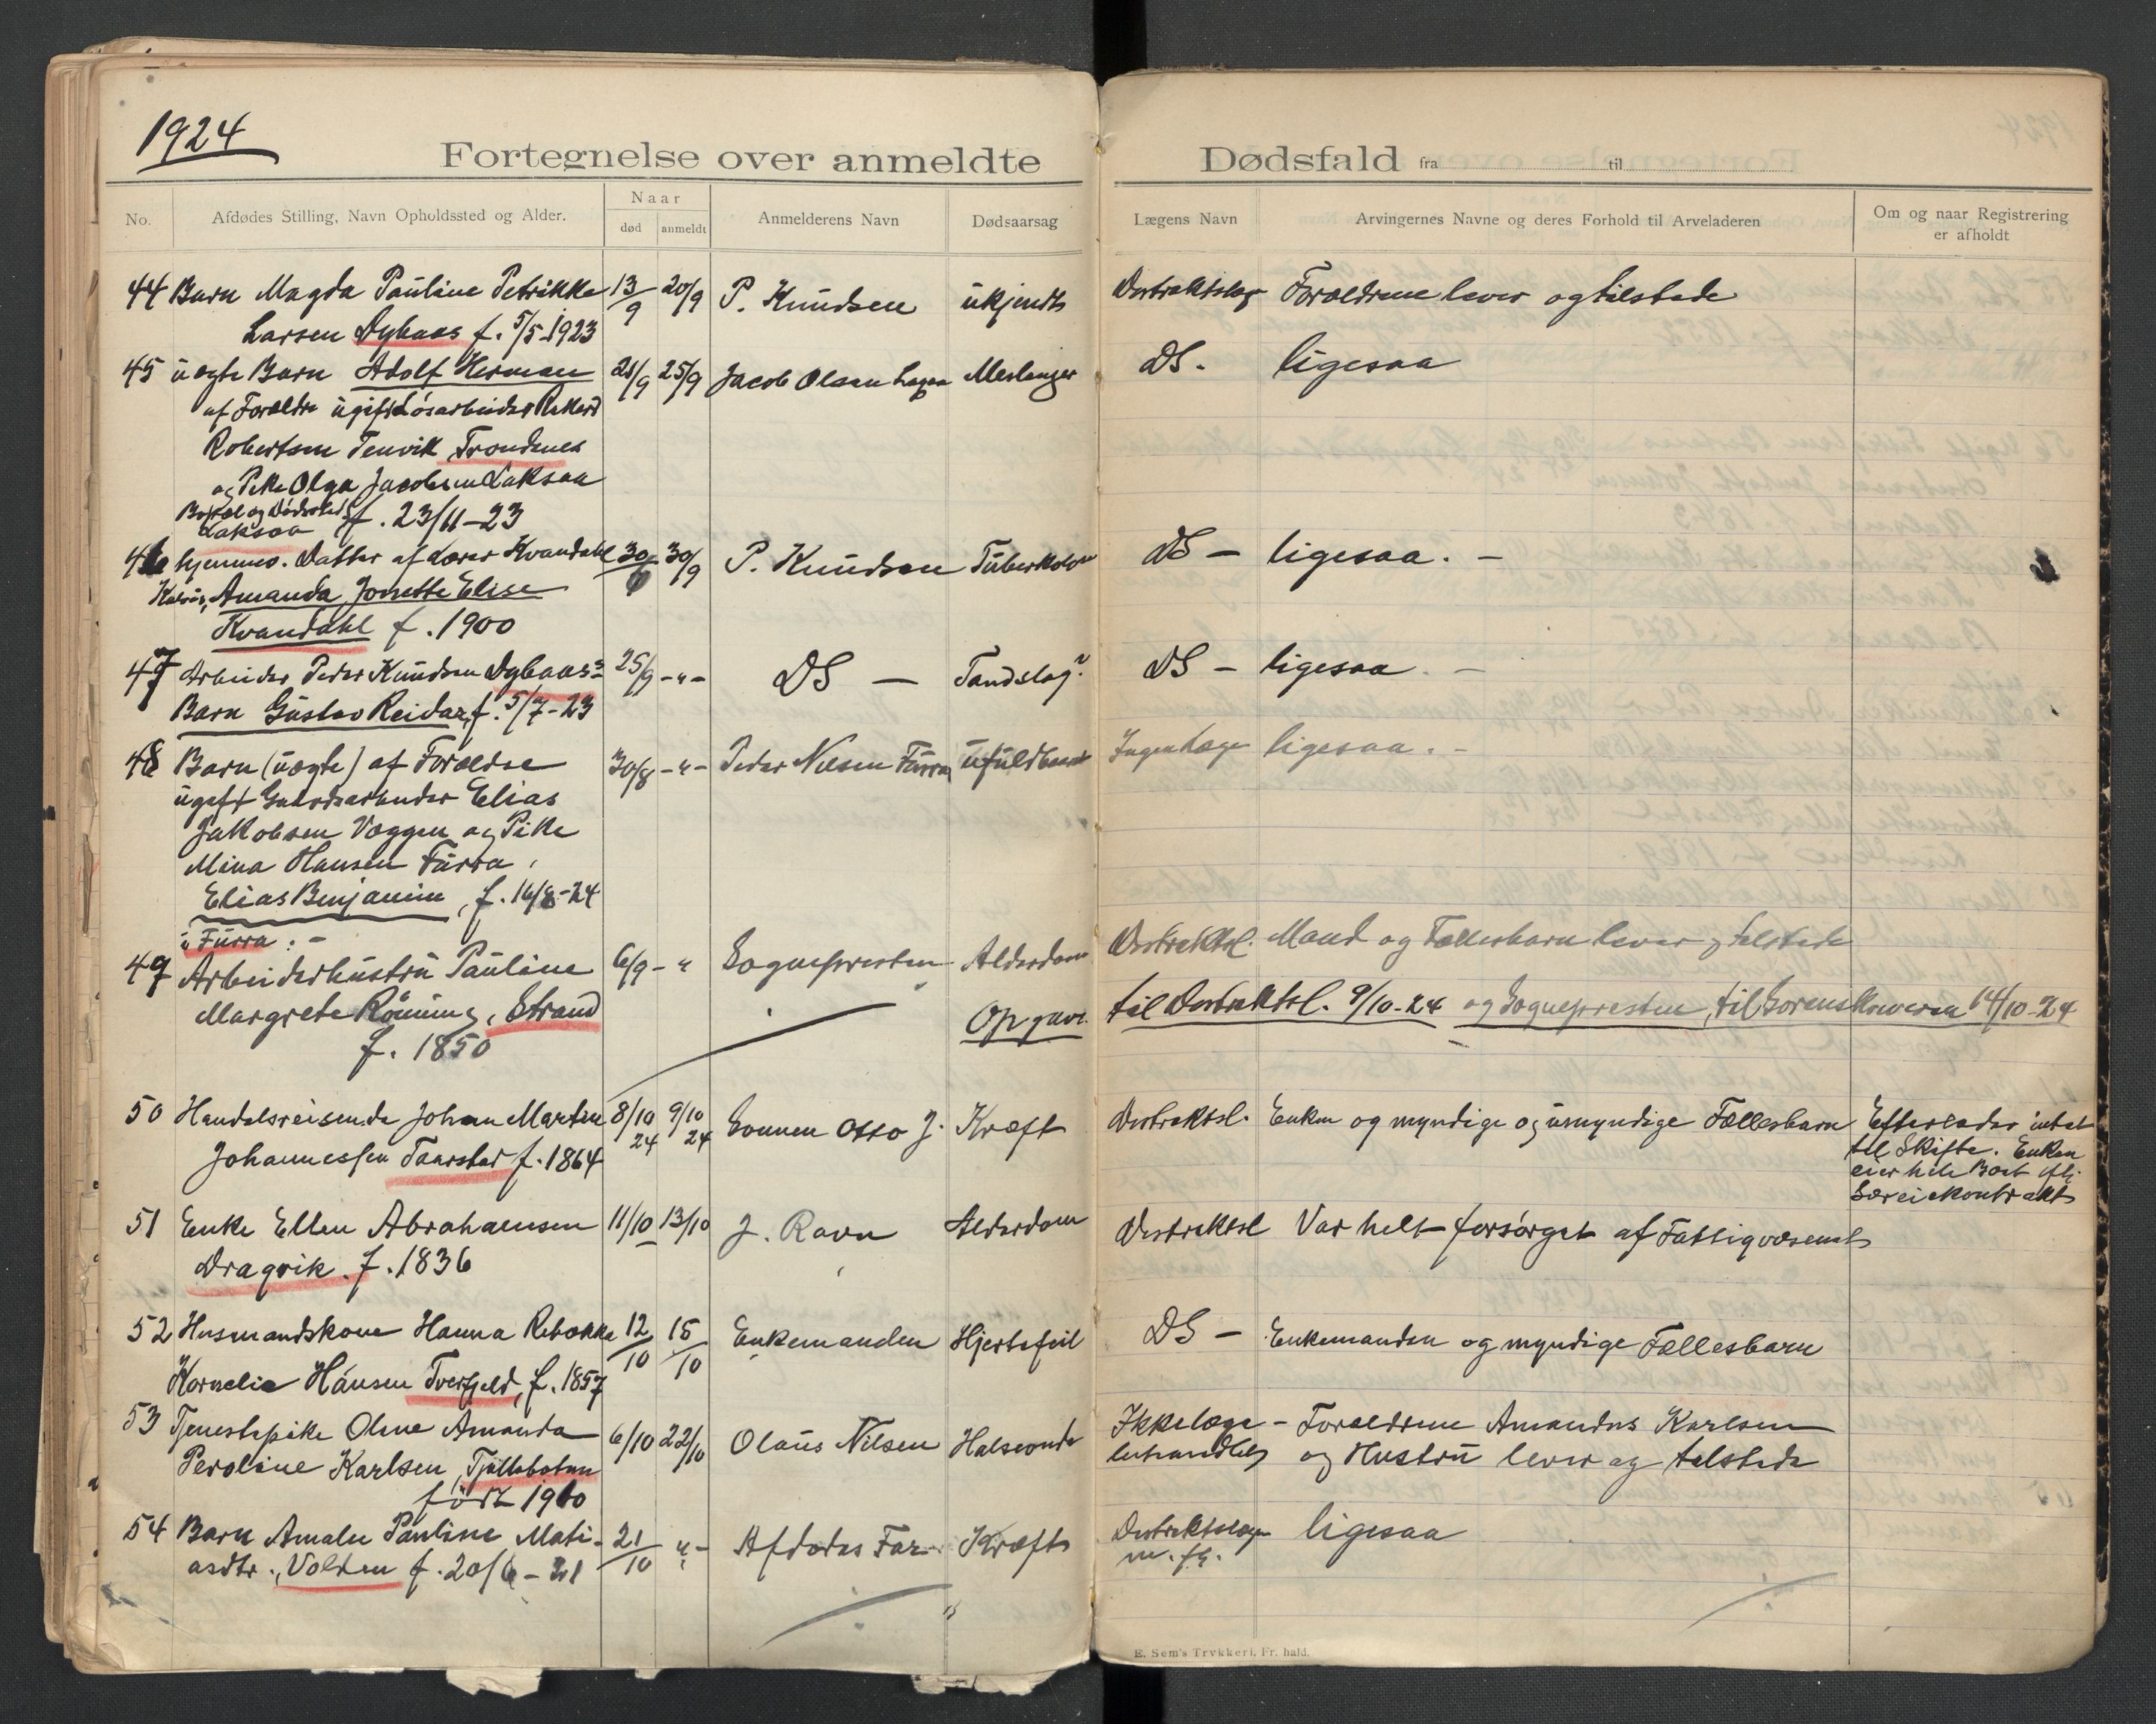 1924
Fortegnelse over anmeldte Dødsfald fra til
No. Afdødes Stilling, Navn Opholdssted og Alder. Naar død anmeldt Anmelderens Navn Dødsaarsag Lægens Navn Arvingernes Navne og deres Forhold til Arveladeren Om og naar Registrering er afholdt
44 Barn Magda Pauline Petrikke 13/9 20/9 P. Knudsen ukjendt Distriktslæg Forældrene lever og tilstede
Larsen Dybaas f. 5/5-1923
45 uægte Barn Adolf Herman 21/9 25/9 Jacob Olsen Meslinger DS. ligesaa
af Forældre ugift Løsarbeider Rikard
Robertsen Tenvik Trondenes
og Pike Olga Jacobsen Laksaa
Bopæl og Dødssted
Laksaa f. 23/11-23
46 hjemmev. Datter af Lærer Kvandahl 30/6 30/9 P. Knudsen Tuberkolose DS - ligesaa. -
Amanda Jonette Elise
Kvandahl f. 1900
47 Arbeider Peder Knudsen Dybaas's 25/9 -"- DS - DS - ligesaa. -
Barn Gustav Reidar, f. 5/7-23
48 Barn (uægte) af Forældre 30/8 -"- Peder Nilsen Furra ufuldbaaret Ingen Læge ligesaa. -
ugift Gaardsarbeider Elias
Jakobsen Væggen og Pike
Mina Hansen Furra,
Elias Benjamin, f. 16/8-24
i Furra. -
49 Arbeiderhustru Pauline 6/9 -" Sognepresten Alderdom Distriktsl. Mand og Fællesbarn lever og tilstede
Margrete Rønning, Strand
f. 1850
Opgave til Distriktsl. 9/10-24 og Sognepresten, til Sorenskriveren 14/10-24
50 Handelsreisende Johan Martin 8/10 24 9/10 24 Sønnen Otto J. Kræft Distriktsl. Enken og myndige og umyndige Fællesbarn Efterlader intet
Johannessen Taarstad f. 1864 til Skifte. Enken
eier hele Boet iflg.
Særeiekontrakt
51 Enke Ellen Abrahamsen 11/10 13/10 J. Ravn Alderdom Distriktsl Var helt forsørget af Fattigvæsenet
Dragvik. f. 1836
52 Husmandskone Hanna Rebekka 12/10 15/10 Enkemanden Hjertefeil DS - Enkemanden og myndige Fællesbarn
Kornelia Hansen Tverfjeld, f. 1857
53 Tjenestepike Oline Amanda 6/10 22/10 Olaus Nilsen Halsonde Ikke læge- Forældrene Amandus Karlsen
Peroline Karlsen, Tjællebotten behandlet og Hustru lever og tilstede
født 1910
54 Barn Amalie Pauline Mati- 21/10 "- Afdødes Far Kræft Distriktslægen ligesaa
asdtr., Volden f. 20/6-21 m. fl.
E. Sem's Trykkeri, Fr. hald.